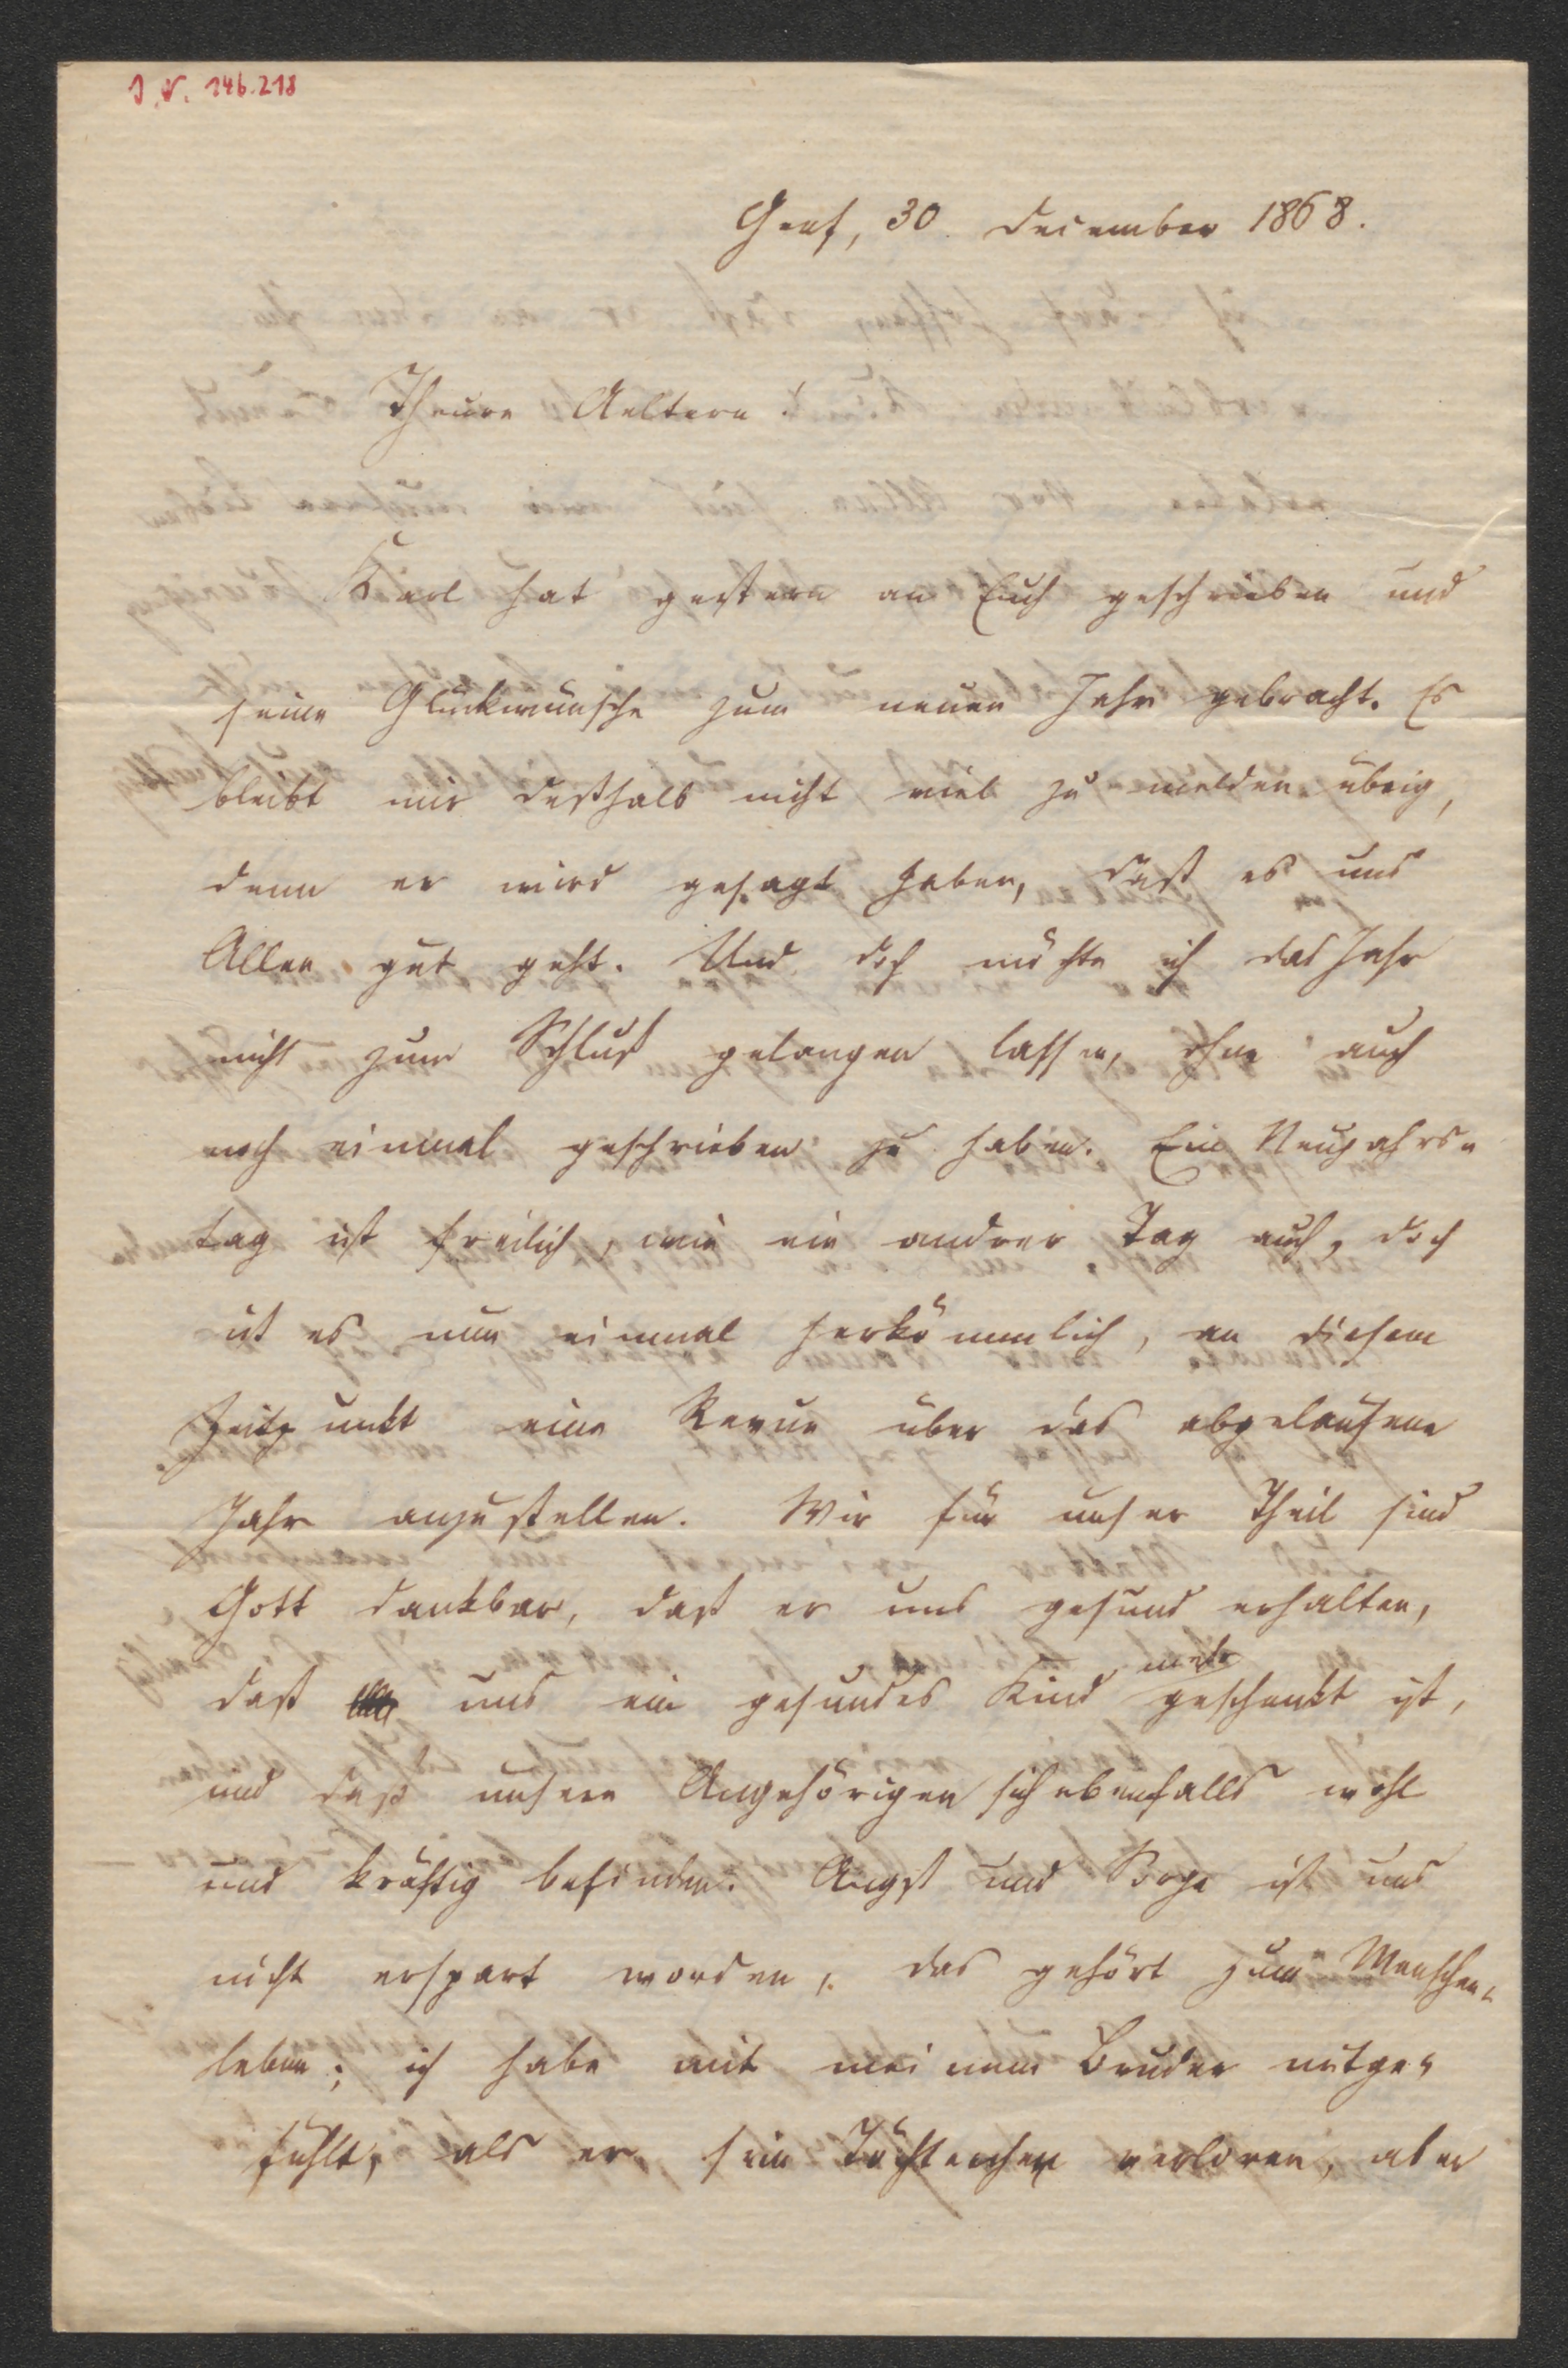 J. N. 146.218
Genf, 30. December 1868.
Theure Aeltern!
Karl hat gestern an Euch geschrieben und
seine Glückwünsche zum neuen Jahr gebracht. Es
bleibt mir deßhalb nicht viel zu melden übrig,
denn er wird gesagt haben, daß es uns
Allen gut geht. Und doch möchte ich das Jahr
nicht zum Schluß gelangen lassen, ohne auch
noch einmal geschrieben zu haben. Ein Neujahrs-
tag ist freilich, wie ein andrer Tag auch, doch
ist es nun einmal herkömmlich, an diesem
Zeitpunkt eine Revue über das abgelaufene
Jahr anzustellen. Wir für unser Theil sind
Gott dankbar, daß er uns gesund erhalten,
daß uns ein gesundes Kind mehr geschenkt ist,
und daß unsere Angehörigen sich ebenfalls wohl
und kräftig befinden. Angst und Sorge ist uns
nicht erspart worden, das gehört zum Menschen-
leben; ich habe mit meinem Bruder mitge-
fühlt, als er sein Töchterchen verloren, aber